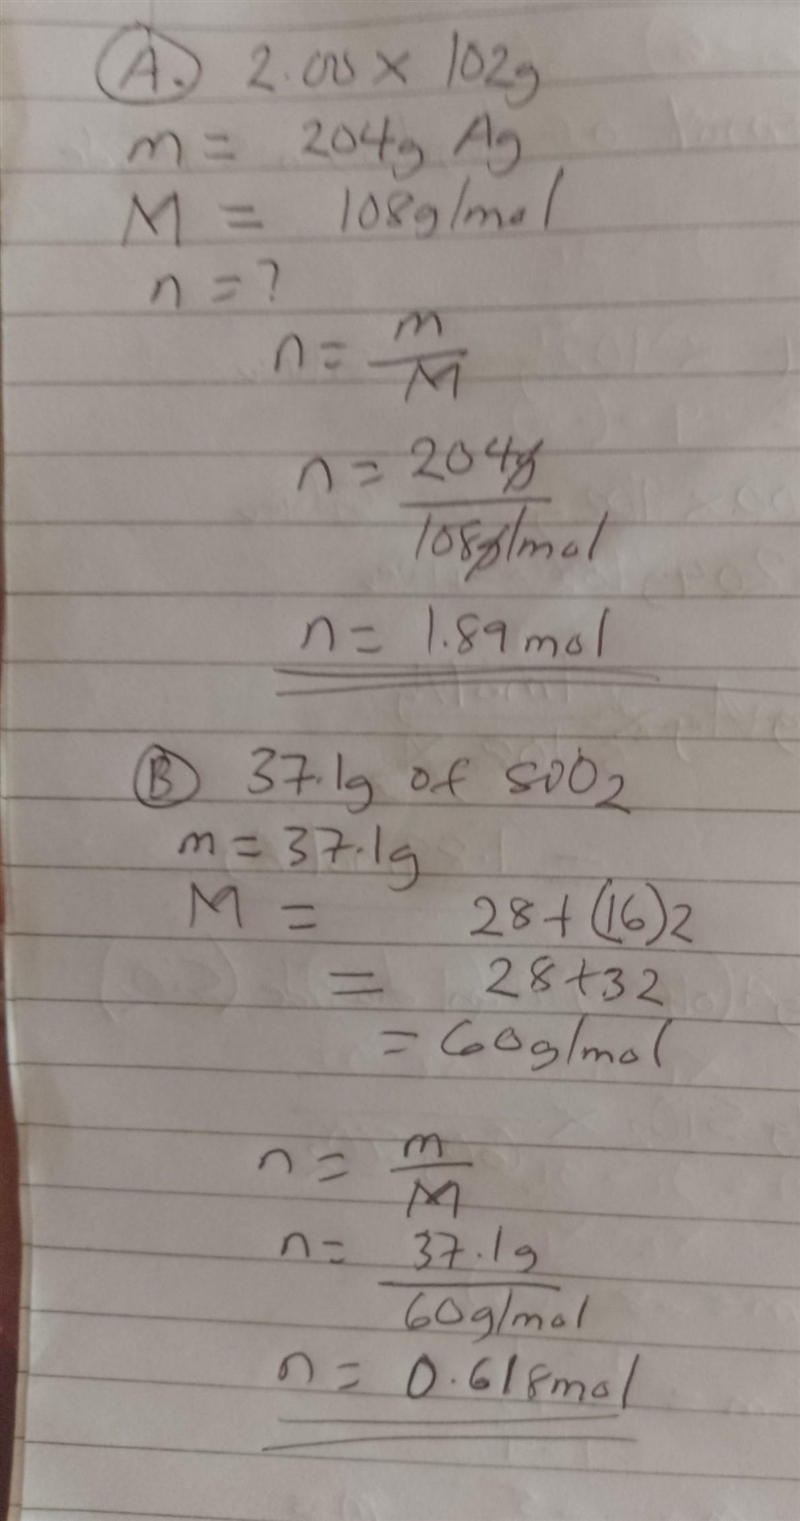 A. 2.00 × 102g
m = 204g Ag
M = 108g/mol
n = ?
n = m/M
n = 204g/108g/mol
n = 1.89 mol
B 37.1g of SiO2
m = 37.1g
M = 28+(16)2
= 28+32
= 60g/mol
n = m/M
n = 37.1g/60g/mol
n = 0.618mol